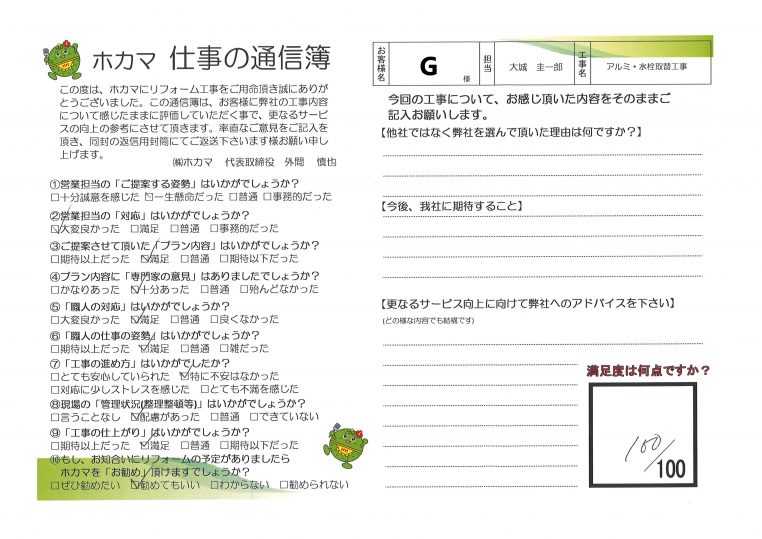 ホカマ 仕事の通信簿
この度は、ホカマにリフォーム工事をご用命頂き誠にありが
とうございました。この通信簿は、お客様に弊社の工事内容
について感じたままに評価していただく事で、更なるサービ
スの向上の参考にさせて頂きます。率直なご意見をご記入を
頂き、同封の返信用封筒にてご返送下さいます様お願い申し
上げます。
㈱ホカマ 代表取締役 外間 慎也
①営業担当の「ご提案する姿勢」はいかがでしょうか？
□十分誠意を感じた ☑一生懸命だった □普通 □事務的だった
②営業担当の「対応」はいかがでしょうか？
☑大変良かった □満足 □普通 □事務的だった
③ご提案させて頂いた「プラン内容」はいかがでしょうか？
□期待以上だった ☑満足 □普通 □期待以下だった
④プラン内容に「専門家の意見」はありましたでしょうか？
□かなりあった ☑十分あった □普通 □殆んどなかった
⑤「職人の対応」はいかがでしょうか？
□大変良かった ☑満足 □普通 □良くなかった
⑥「職人の仕事の姿勢」はいかがでしょうか？
□期待以上だった ☑満足 □普通 □雑だった
⑦「工事の進め方」はいかがでしたか？
□とても安心していられた ☑特に不安はなかった
□対応に少しストレスを感じた □とても不満を感じた
⑧現場の「管理状況(整理整頓等)」はいかがでしょうか？
□言うことなし ☑配慮があった □普通 □できていない
⑨「工事の仕上がり」はいかがでしょうか？
□期待以上だった ☑満足 □普通 □期待以下だった
⑩もし、お知合いにリフォームの予定がありましたら
ホカマを「お勧め」頂けますでしょうか？
□ぜひ勧めたい ☑勧めてもいい □わからない □勧められない
お客様名 G 様 担当 大城 圭一郎 工事名 アルミ・水栓取替工事
今回の工事について、お感じ頂いた内容をそのままご
記入お願いします。
【他社ではなく弊社を選んで頂いた理由は何ですか？】
【今後、我社に期待すること】
【更なるサービス向上に向けて弊社へのアドバイスを下さい】
(どの様な内容でも結構です)
満足度は何点ですか？
100/100